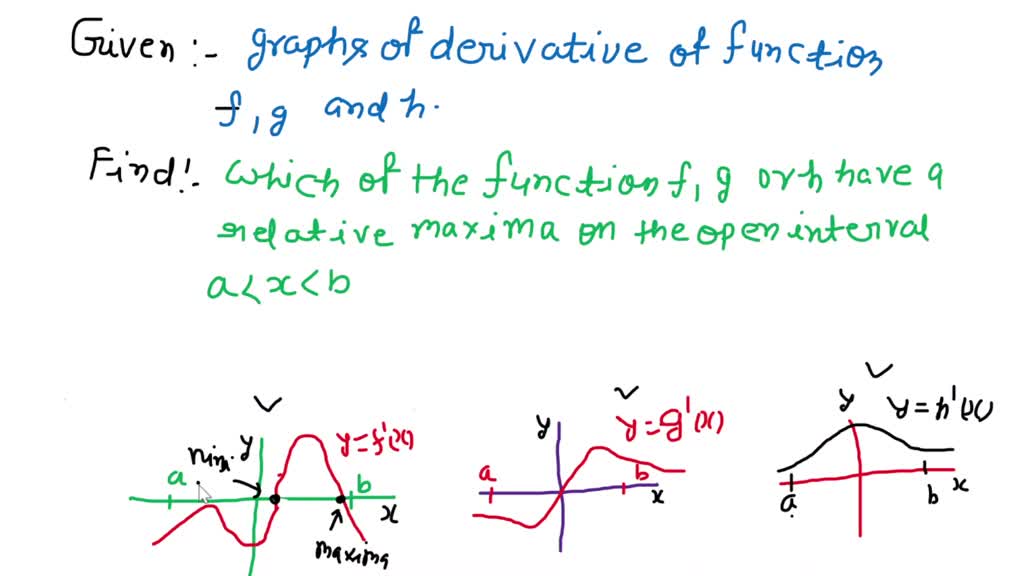 Given :- graphs of derivative of function
f, g and h.
Find :- which of the function f, g or h have a
relative maxima on the open interval
a < x < b
y = f'(x)
y
nim.
a
b
x
maxima
y = g'(x)
y
a
b
x
y = h'(x)
y
a
b
x